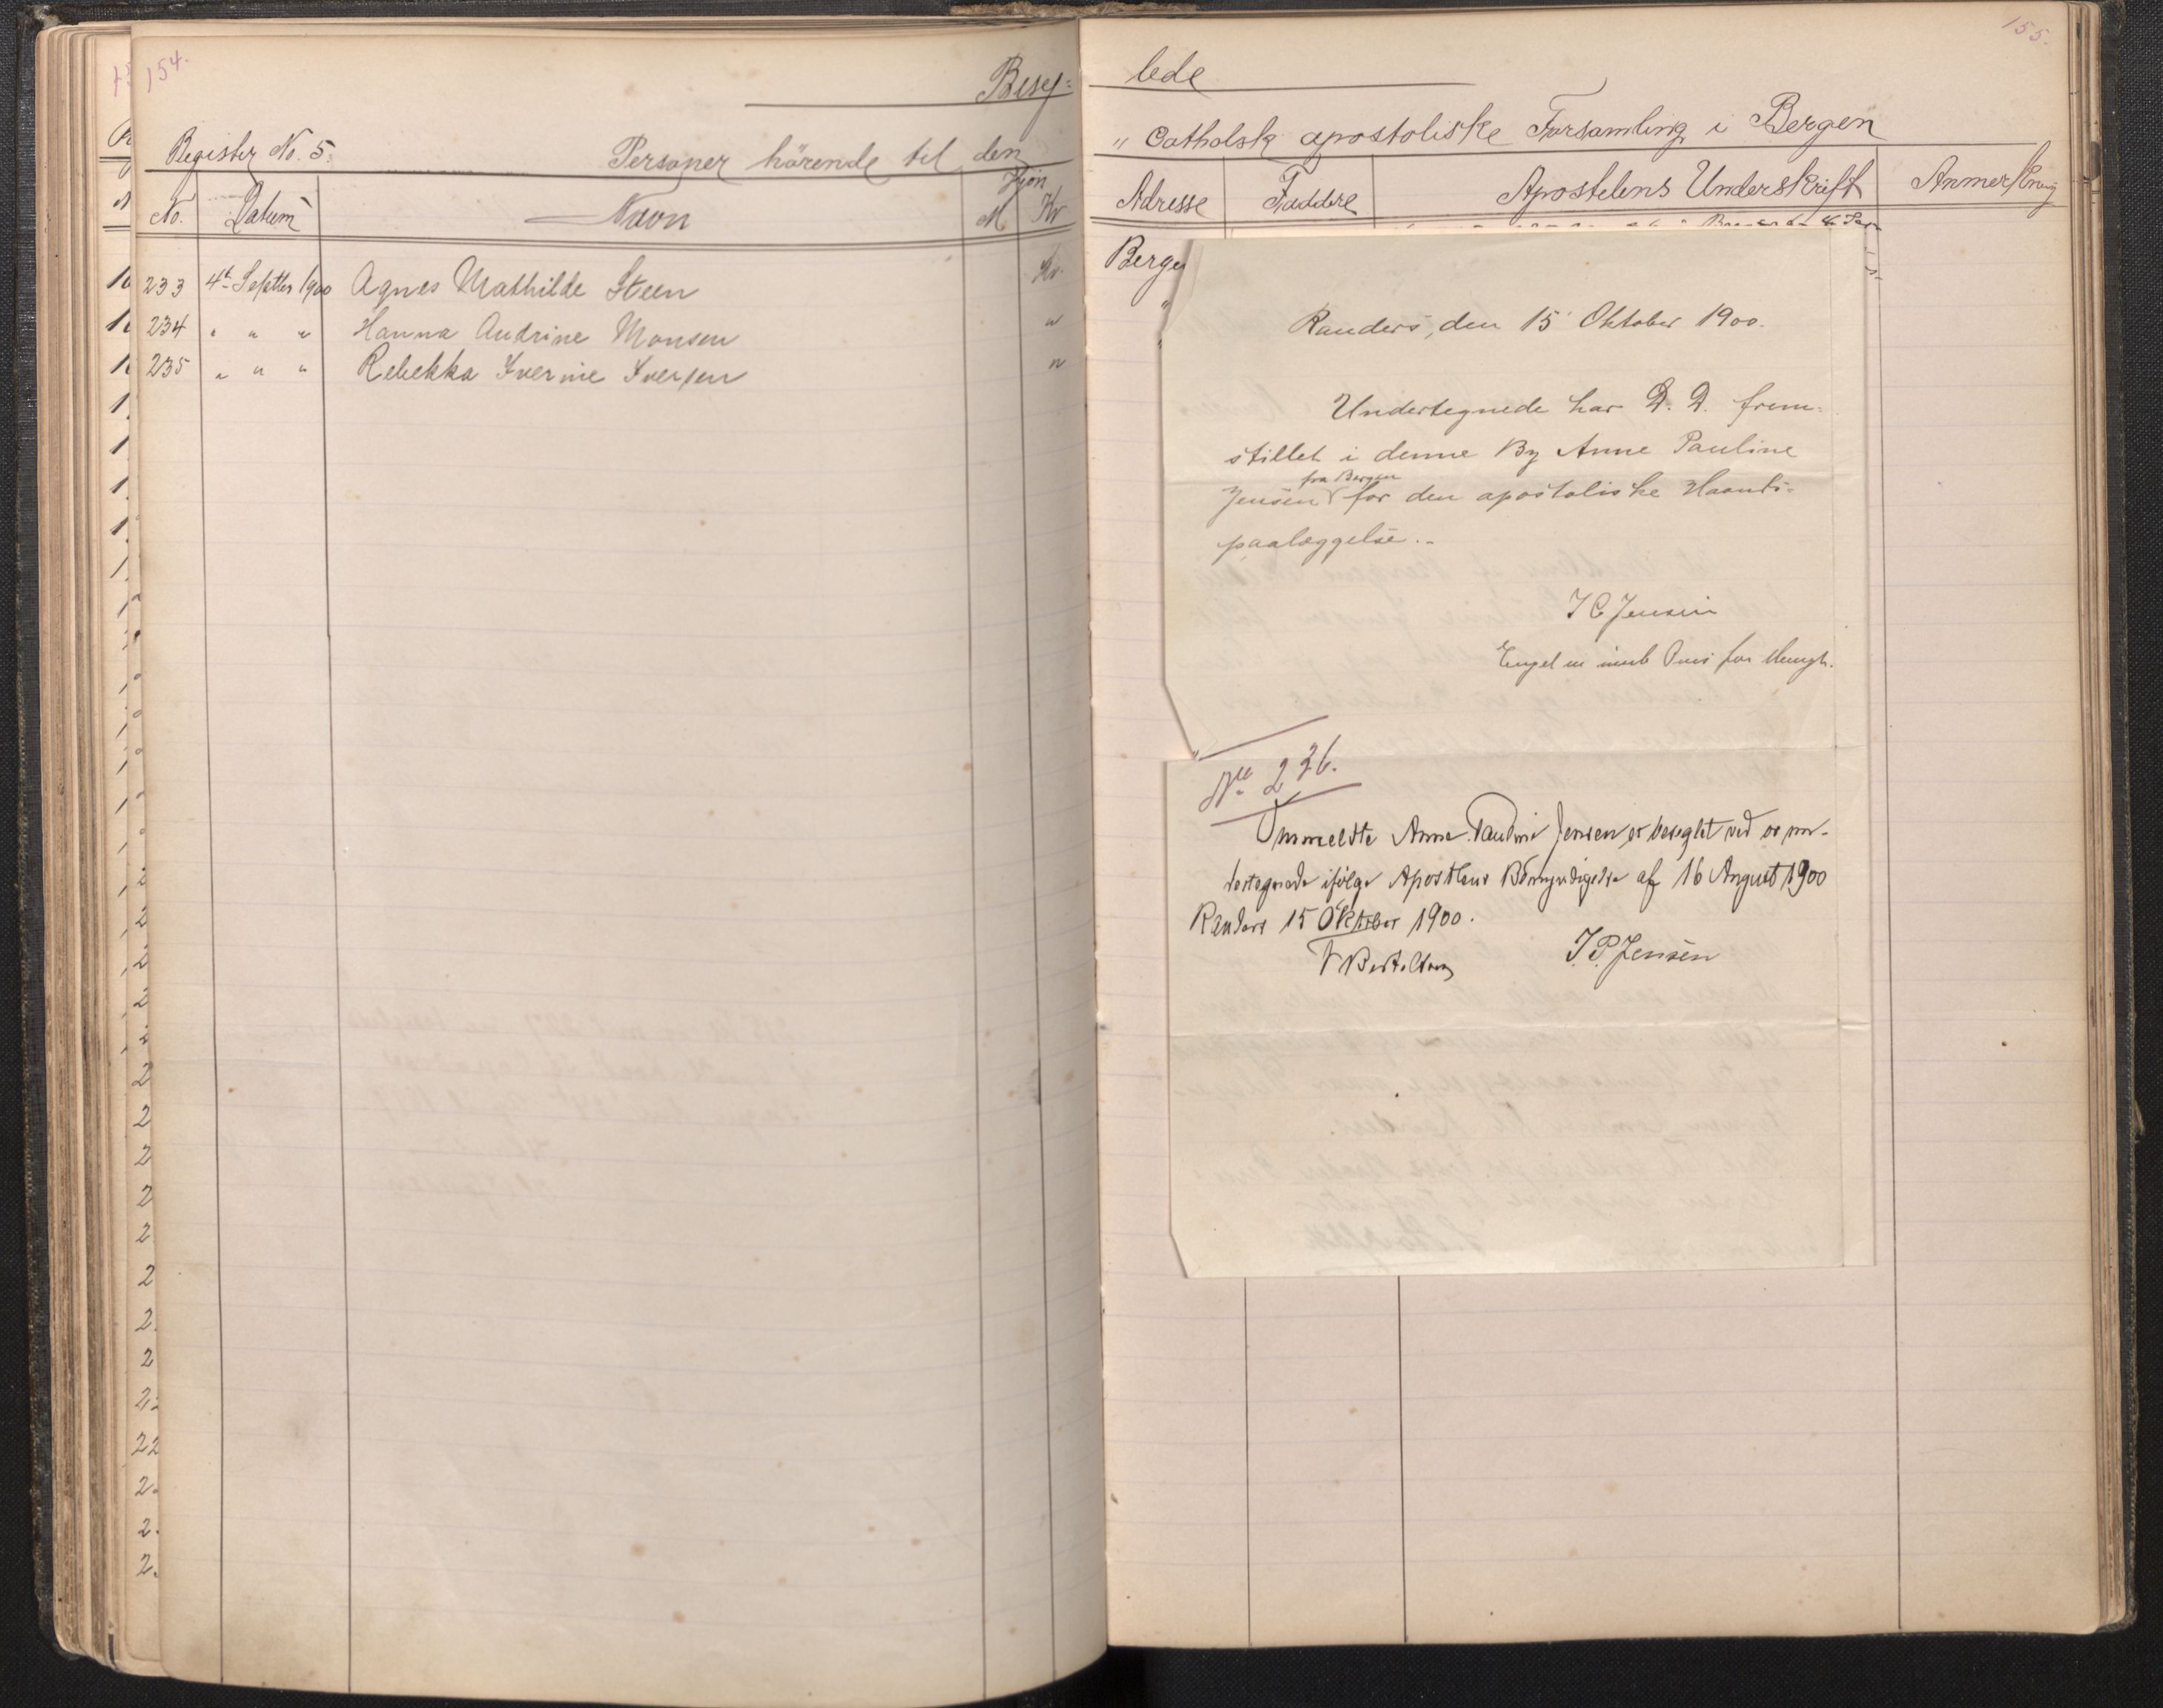 154.
Beseg=
Register No. 5.
Personer hörende til den
Kjön
No. Datum Navn M Kv
233 4de Septbr 1900 Agnes Mathilde Steen Kv.
234 " " " Hanna Andrine Monsen "
235 " " " Rebekka Iverine Iversen "
155.
lede
" Catholsk apostoliske Forsamling i Bergen
Adresse Faddere Apostelens Underskrift Anmerkning
Berge
Randers, den 15 Oktober 1900.
Undertegnede har D. D. frem-
stillet i denne By Anne Pauline
fra Bergen
Jensen for den apostoliske Haands-
paalæggelse.-
I C Jensen
No 236.
Ommeldte Anne Pauline Jensen er beseglet ved os un-
dertegnede ifølge Apostlens Bemyndigelse af 16 August 1900
Randers 15 Oktober 1900.
I. P. Jensen